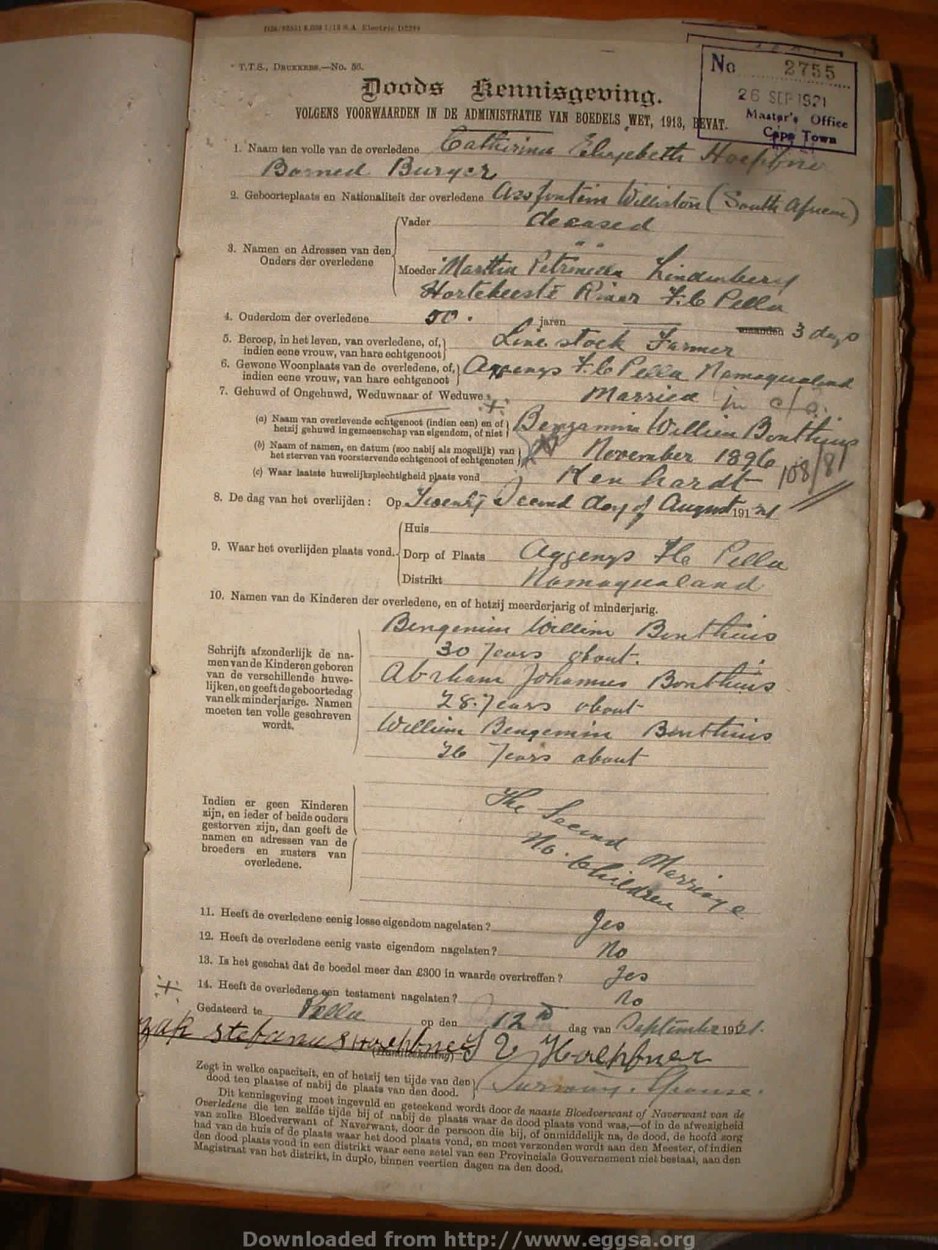 T.T.S., DRUKKERS.—No. 56.
No 2755
26 SEP 1921
Master's Office
Cape Town
Doods Kennisgeving.
VOLGENS VOORWAARDEN IN DE ADMINISTRATIE VAN BOEDELS WET, 1913, BEVAT.
1. Naam ten volle van de overledene Catherina Elizebeth Hoepfne
Borned Burger
2. Geboorteplaats en Nationaliteit der overledene Assfontein Williston (South African)
3. Namen en Adressen van den Ouders der overledene
Vader deceased
Moeder Martha Petrineda Lindenberg
Hartebeeste River F.C Pella
4. Ouderdom der overledene 50. jaren maanden 3 days
5. Beroep, in het leven, van overledene, of, indien eene vrouw, van hare echtgenoot
Live stock Farmer
6. Gewone Woonplaats van de overledene, of, indien eene vrouw, van hare echtgenoot
Aggenys F.C Pella Namaqualand
7. Gehuwd of Ongehuwd, Weduwnaar of Weduwe Married in c/o
(a) Naam van overlevende echtgenoot (indien een) en of hetzij gehuwd in gemeenschap van eigendom, of niet
Bengamin Willien Bonthuys
(b) Naam of namen, en datum (zoo nabij als mogelijk) van het sterven van voorstervende echtgenoot of echtgenoten
November 1896
108/8
(c) Waar laatste huwelijksplechtigheid plaats vond Kenhardt
8. De dag van het overlijden: Op Twenty Second day of August 191 21
9. Waar het overlijden plaats vond.
Huis
Dorp of Plaats Aggenys F.C Pella
Distrikt Namaqualand
10. Namen van de Kinderen der overledene, en of hetzij meerderjarig of minderjarig.
Schrijft afzonderlijk de na-
men van de Kinderen geboren
van de verschillende huwe-
lijken, en geeft de geboortedag
van elk minderjarige. Namen
moeten ten volle geschreven
wordt.
Bengemin Willim Bonthuis
30 Years about.
Abraham Johannes Bonthuis
28 Years about
Willim Bengemin Bonthuis
26 Years about
Indien er geen Kinderen
zijn, en ieder of beide ouders
gestorven zijn, dan geeft de
namen en adressen van de
broeders en zusters van
overledene.
The Second Marriage
No. Children
11. Heeft de overledene eenig losse eigendom nagelaten? Yes
12. Heeft de overledene eenig vaste eigendom nagelaten? No
13. Is het geschat dat de boedel meer dan £300 in waarde overtreffen? Yes
14. Heeft de overledene een testament nagelaten? No
Gedateerd te Pella op den 12 dag van September 1921.
stefanus Hoepfner
Hoepfner
Zegt in welke capaciteit, en of hetzij ten tijde van den dood ten plaatse of nabij de plaats van den dood.
Surviving Spouse.
Dit kennisgeving moet ingevuld en geteekend wordt door de naaste Bloedverwant of Naverwant van de
Overledene die ten zelfde tijde bij of nabij de plaats waar de dood plaats vond was,—of in de afwezigheid
van zulke Bloedverwant of Naverwant, door de persoon die bij, of onmiddelijk na, de dood, de hoofd zorg
had van de huis of de plaats waar het dood plaats vond, en moet verzonden wordt aan den Meester, of indien
den dood plaats vond in een distrikt waar eene zetel van een Provinciale Gouvernement niet bestaat, aan den
Magistraat van het distrikt, in duplo, binnen veertien dagen na den dood.
Downloaded from http://www.eggsa.org